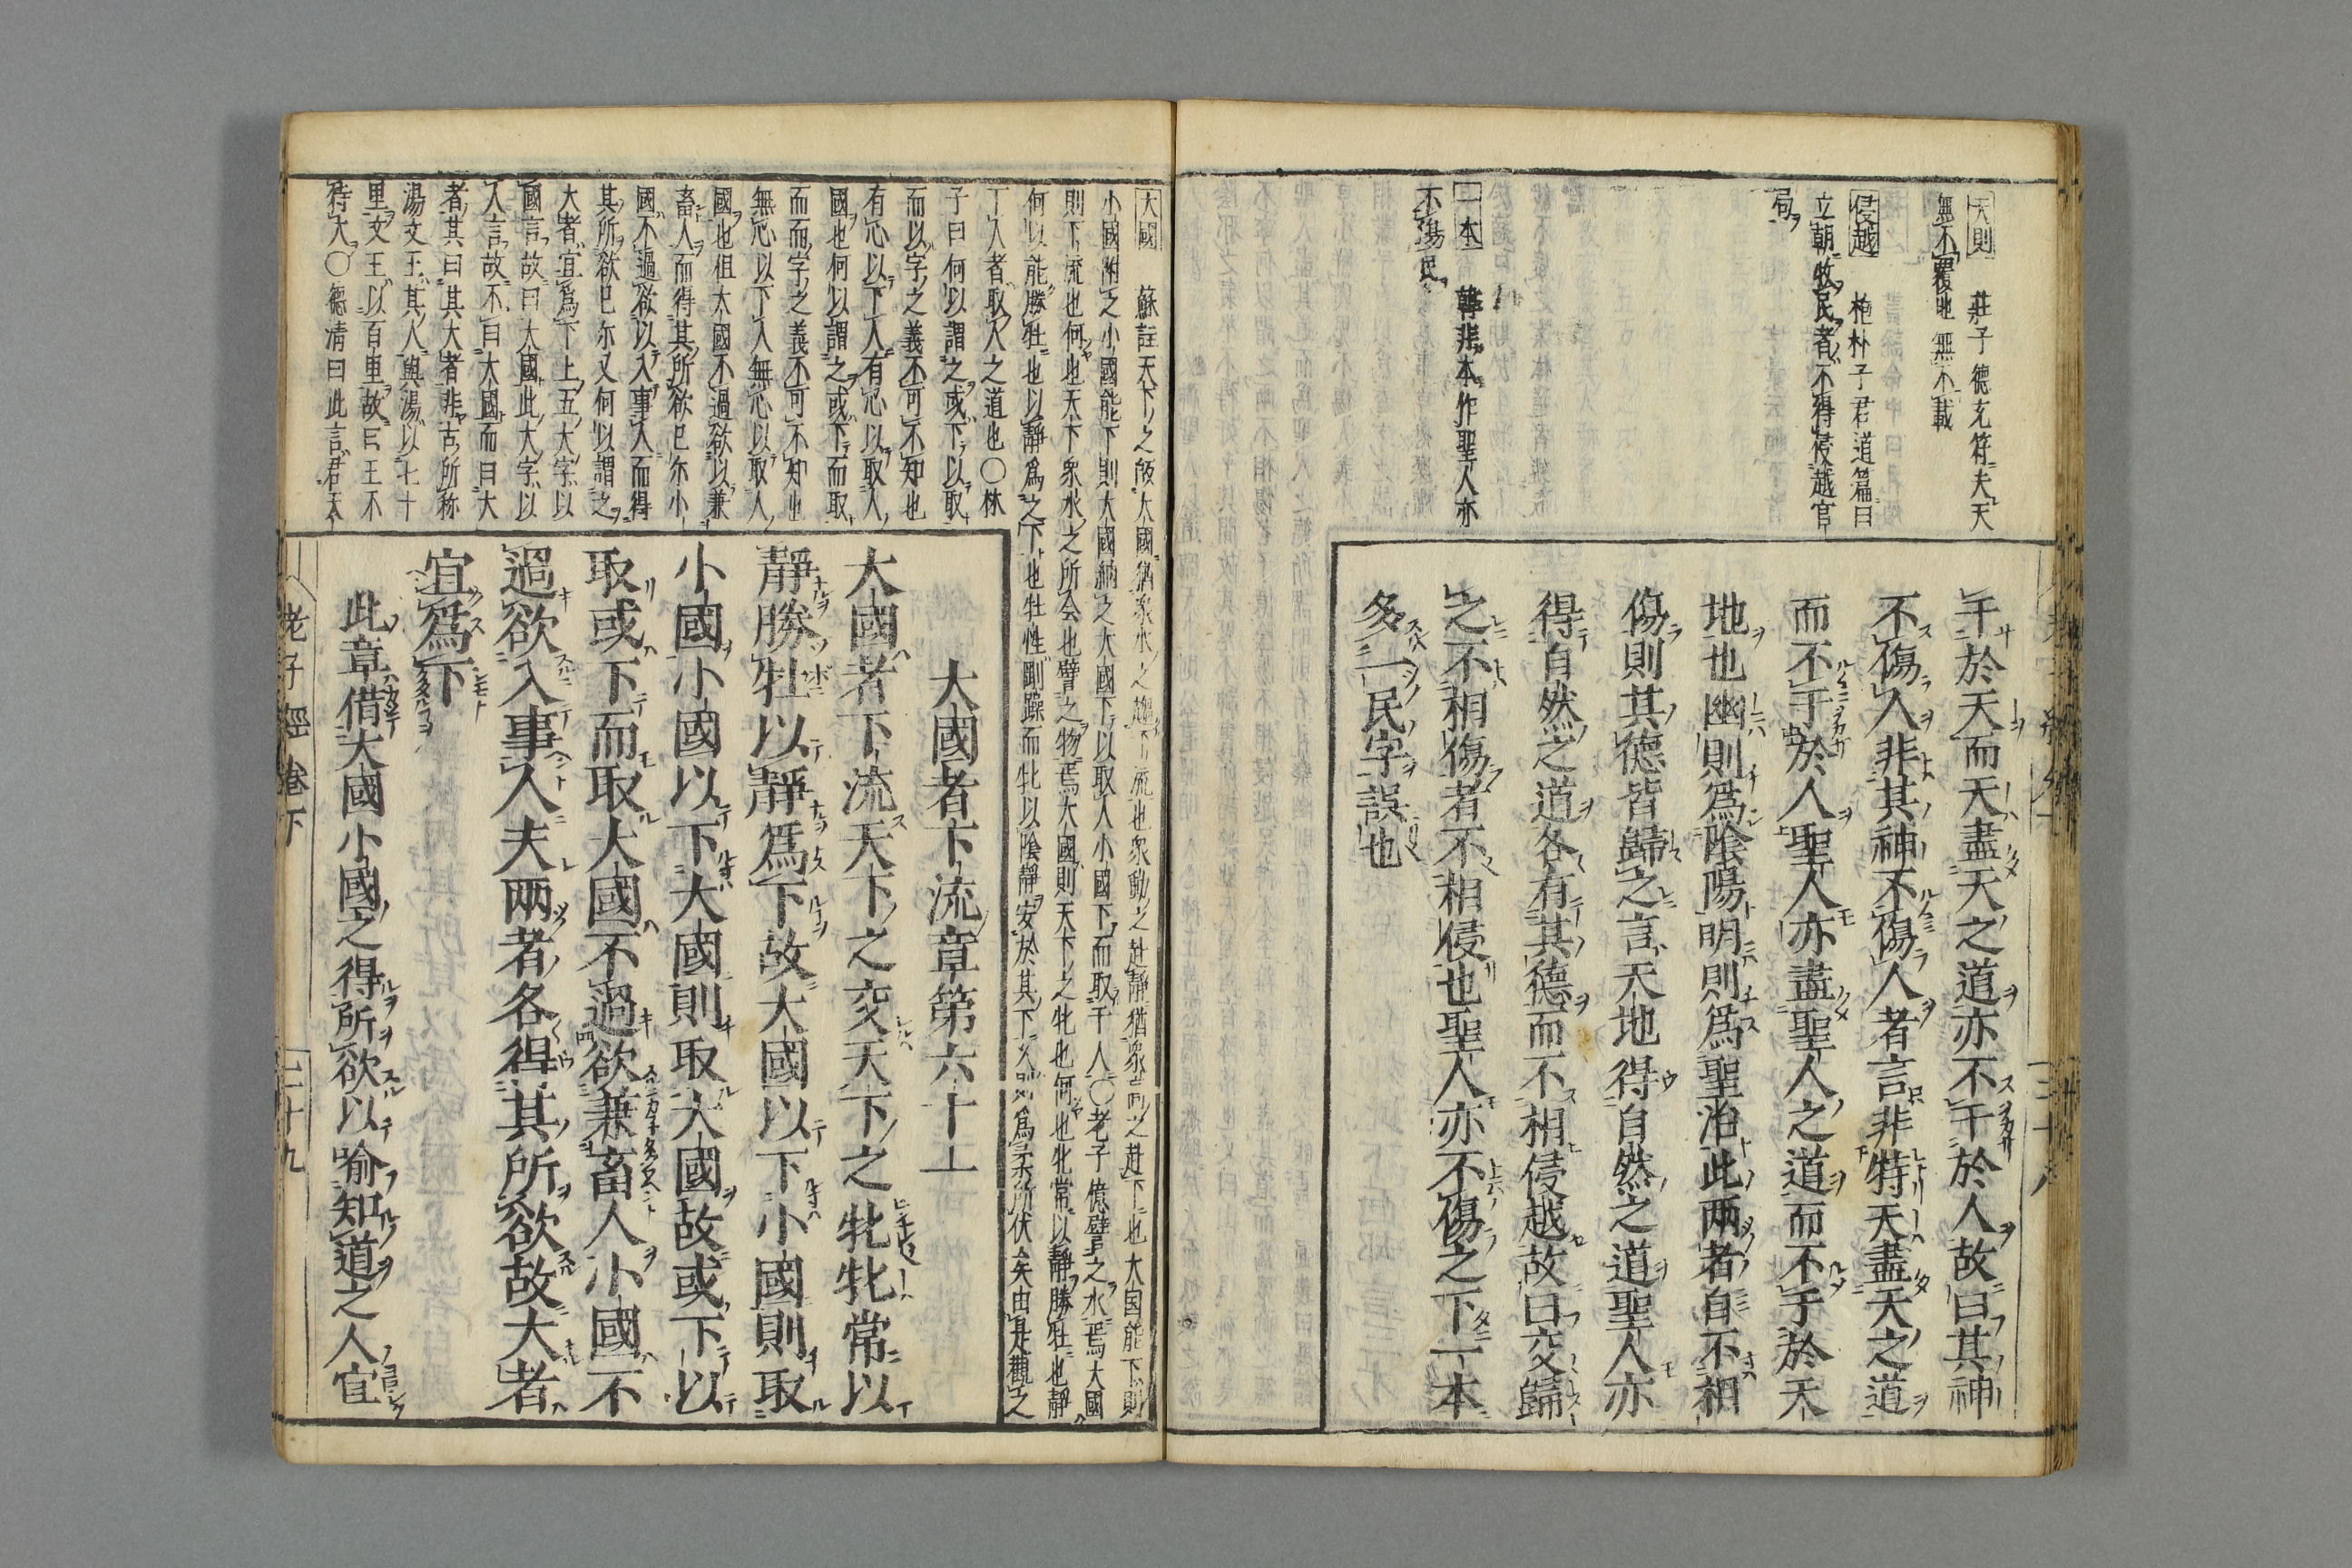 天則 莊子德充符夫天
無不覆地無不載
侵越 抱朴子君道篇曰
立朝牧民者不得侵越官
局
一本 韓非本作聖人亦
不傷民
干於天而天盡天之道亦不干於人故曰其神
不傷人非其神不傷人者言非特天盡天之道
而不干於人聖人亦盡聖人之道而不干於天
地也幽則爲陰陽明則爲聖治此兩者自不相
傷則其德皆歸之言天地得自然之道聖人亦
得自然之道各有其德而不相侵越故曰交歸
之不相傷者不相侵也聖人亦不傷之下一本
多一民字誤也
大國 蘇註天下之歸大國猶衆水之趨下流也衆動之赴靜猶衆高之赴下也大国能下則
小國附之小國能下則大國納之大國下以取人小國下而取于人〇老子億譬之水焉大國
則下流也何也天下衆水之所会也譬之物焉大國則天下之牝也何也牝常以靜勝牡也靜
何以能勝牡也以靜爲之下也牡性剛躁而牝以陰靜安於其下久則爲柔所伏矣由是觀之
下人者取人之道也〇林
子曰何以謂之或下以取
而以字之義不可不知也
有心以下人有心以取人
國也何以謂之或下而取
而而字之義不可不知也
無心以下人無心以取人
國也但大國不過欲以兼
畜人而得其所欲已尓小
國不過欲以入事人而得
其所欲已尓又何以謂之
大者宜爲下上五大字以
國言故曰大國此大字以
人言故不曰大國而曰大
者其曰其大者非古所称
湯文王其人與湯以七十
里文王以百里故曰王不
待大〇德清曰此言君天
大國者下流章第六十一
大國者下流天下之交天下之牝牝常以
靜勝牡以靜爲下故大國以下小國則取
小國小國以下大國則取大國故或下以
取或下而取大國不過欲兼畜人小國不
過欲入事人夫兩者各得其所欲故大者
宜爲下
此章借大國小國之得所欲以喻知道之人宜
老子經卷下 三十九